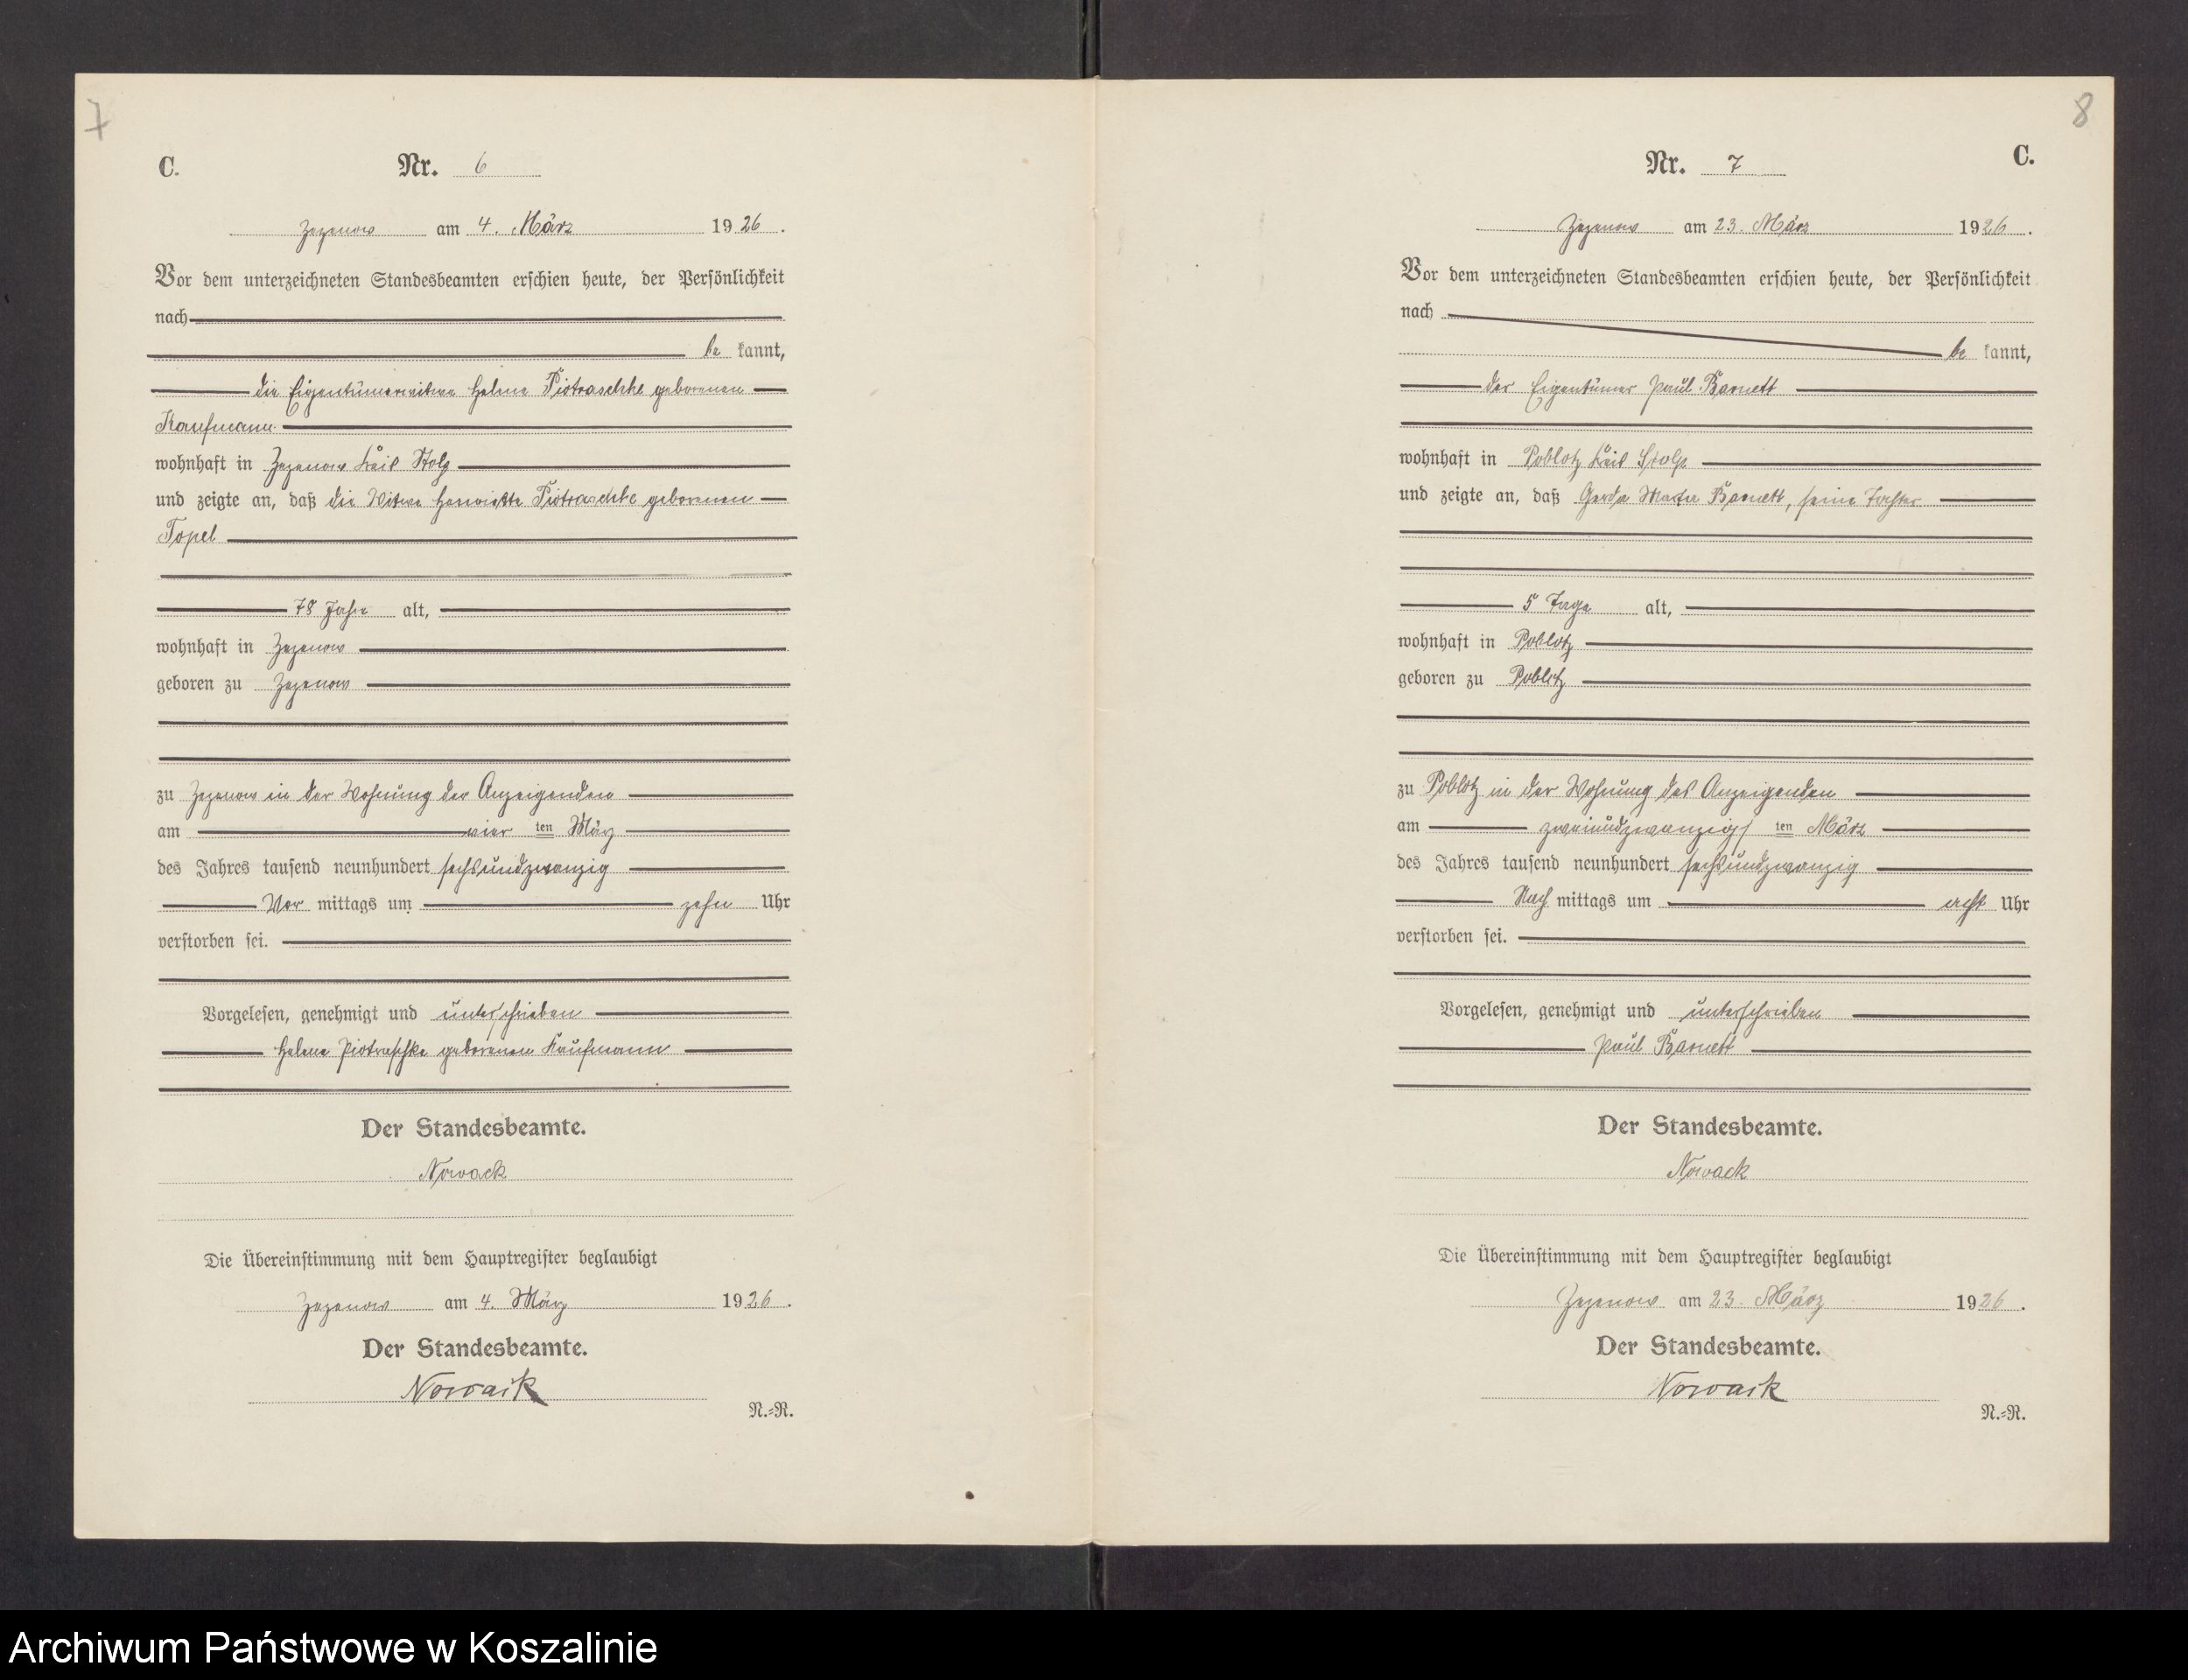 7
C.
Nr. 6
Zezenow am 4. März 1926.
Vor dem unterzeichneten Standesbeamten erschien heute, der Persönlichkeit
nach
be kannt,
die Eigentümerwitwe Helene Piotraschke geborenen
Kaufmann
wohnhaft in Zezenow Kreis Stolp
und zeigte an, daß die Witwe Henriette Piotraschke geborenen
Topel
78 Jahre alt,
wohnhaft in Zezenow
geboren zu Zezenow
zu Zezenow in der Wohnung der Anzeigenden
am vier ten März
des Jahres tausend neunhundert sechsundzwanzig
Vor mittags um zehn Uhr
verstorben sei.
Vorgelesen, genehmigt und unterschrieben
Helene Piotraschke geborenen Kaufmann
Der Standesbeamte.
Nowack
Die Übereinstimmung mit dem Hauptregister beglaubigt
Zezenow am 4. März 1926.
Der Standesbeamte.
Nowack
N.=R.
8
C.
Nr. 7
Zezenow am 23. März 1926.
Vor dem unterzeichneten Standesbeamten erschien heute, der Persönlichkeit
nach
be kannt,
der Eigentümer Paul
wohnhaft in Poblotz Kreis Stolp
und zeigte an, daß Gerda seine Tochter
5 Tage alt,
wohnhaft in Poblotz
geboren zu Poblotz
zu Poblotz in der Wohnung des Anzeigenden
am zweiundzwanzigs ten März
des Jahres tausend neunhundert sechsundzwanzig
Nach mittags um acht Uhr
verstorben sei.
Vorgelesen, genehmigt und unterschrieben
Paul
Der Standesbeamte.
Nowack
Die Übereinstimmung mit dem Hauptregister beglaubigt
Zezenow am 23. März 1926.
Der Standesbeamte.
Nowack
N.=R.
Archiwum Państwowe w Koszalinie